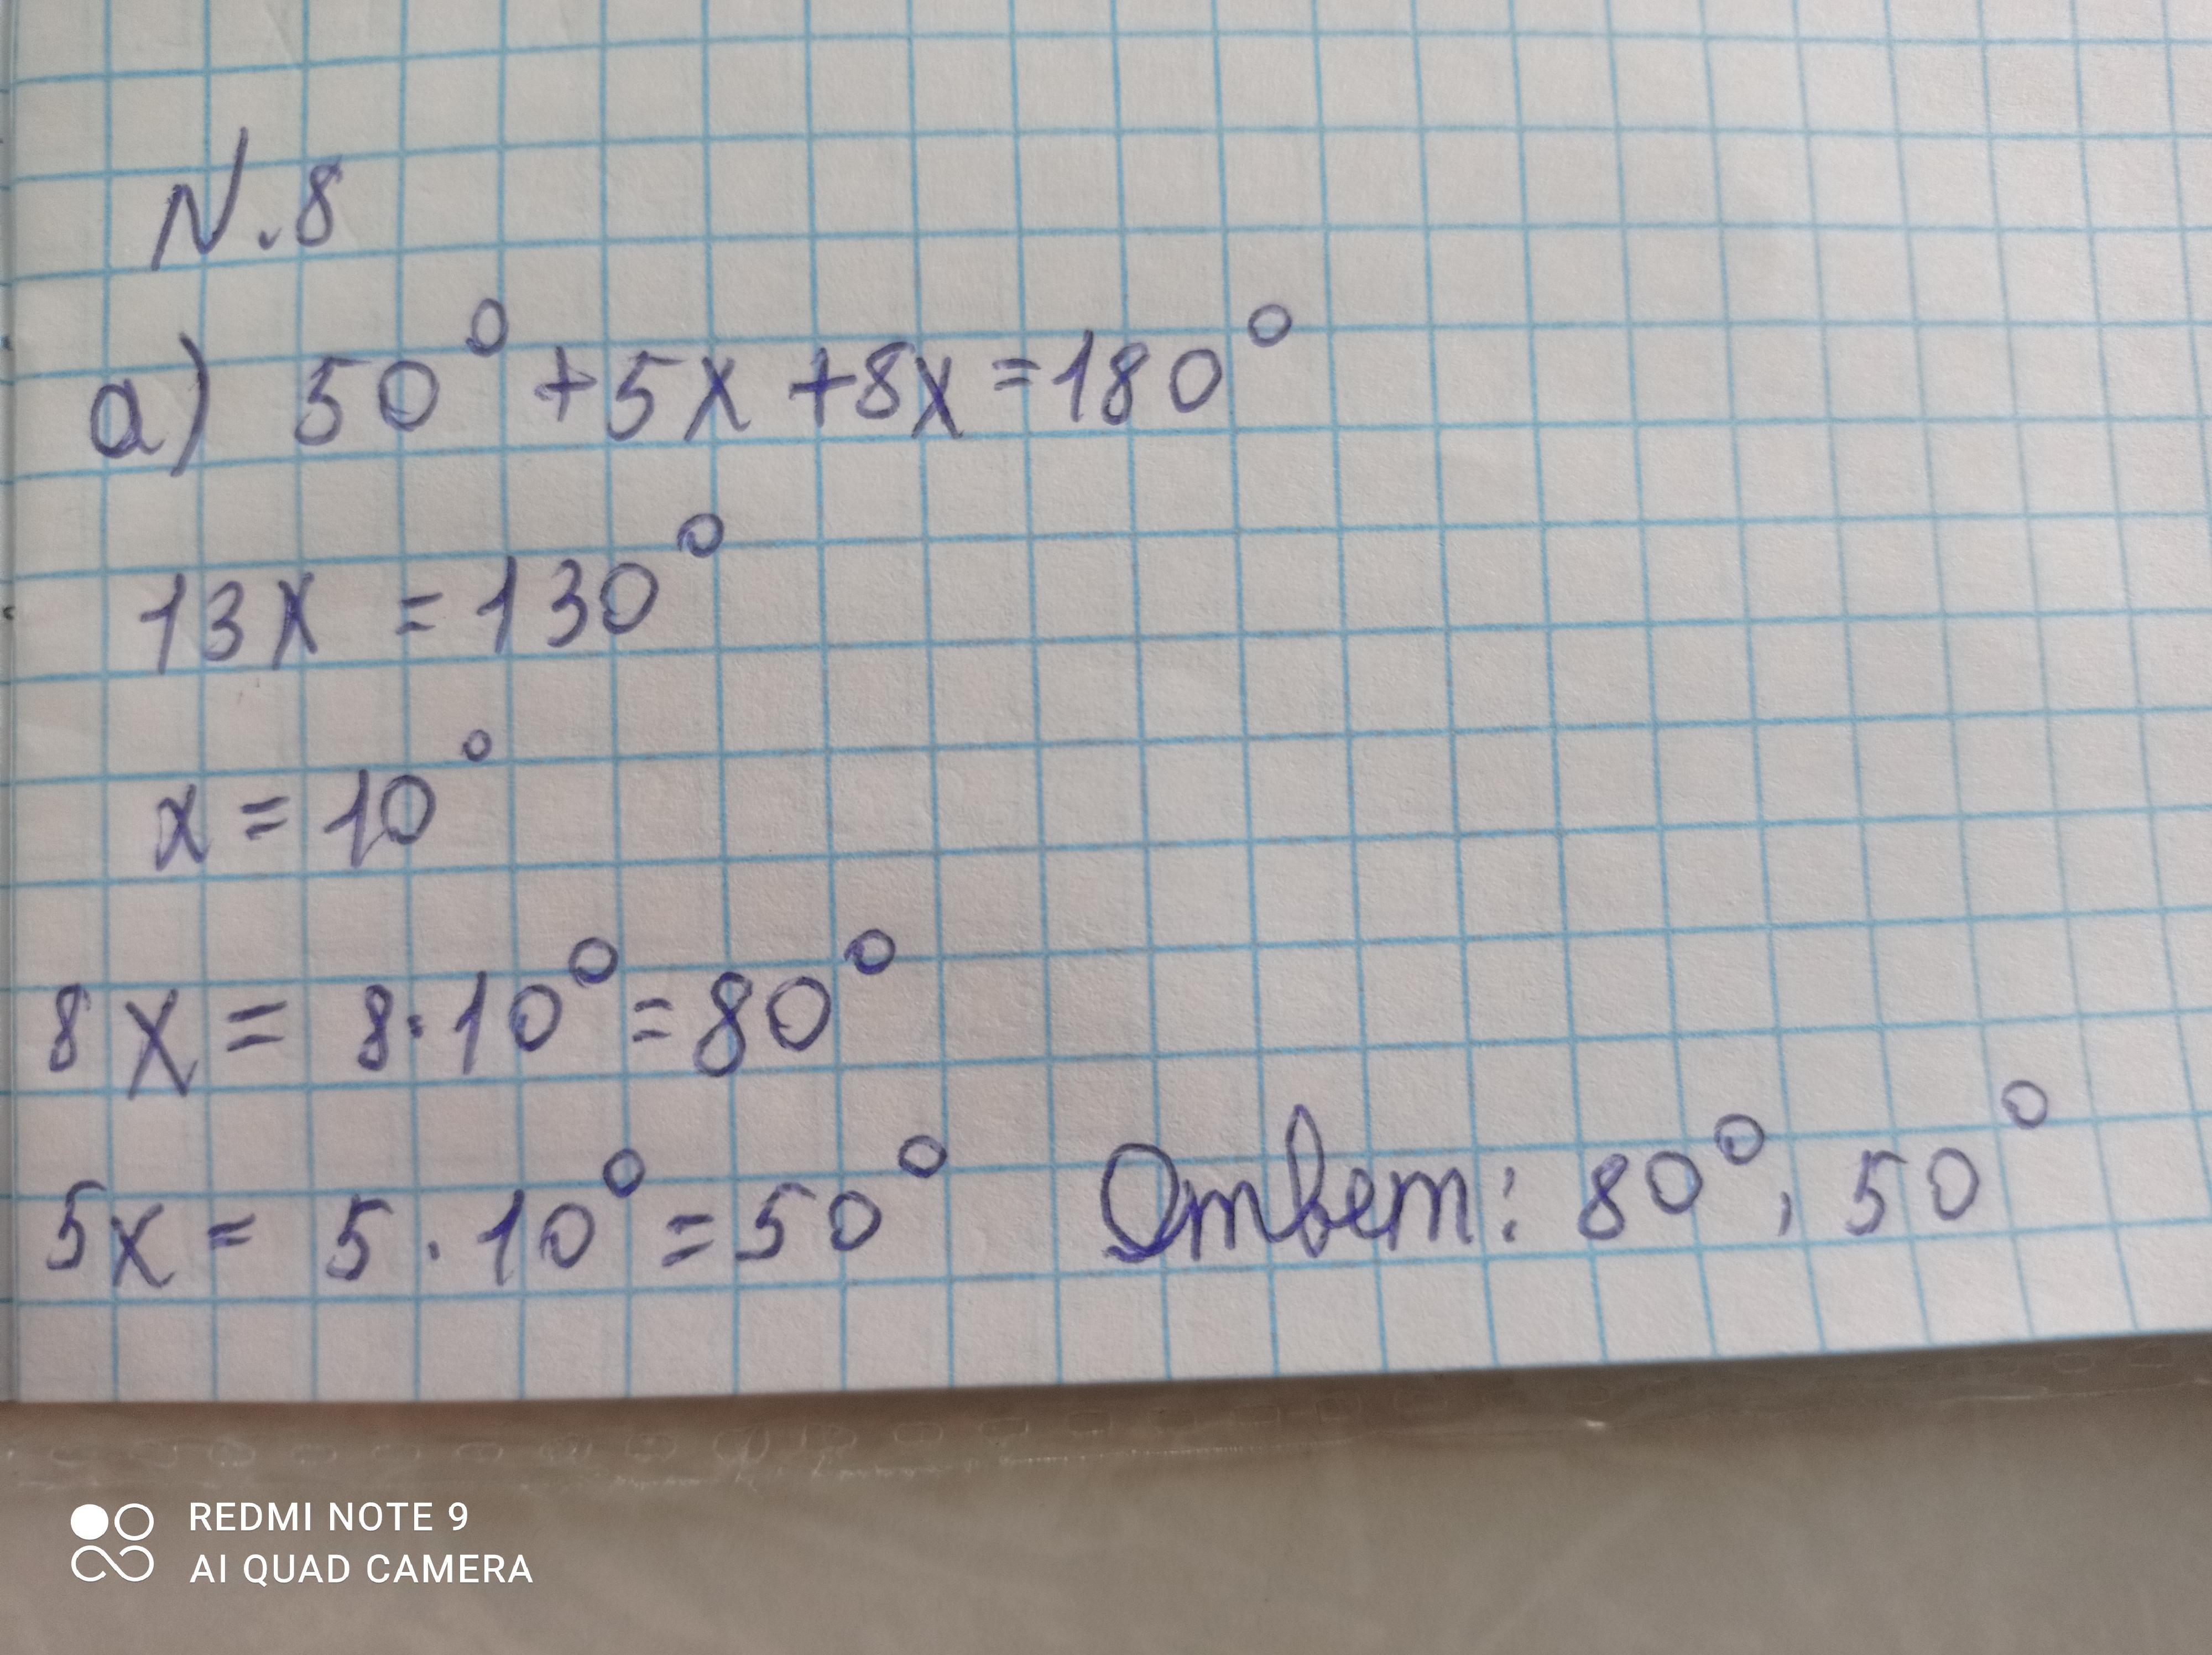 N.8
а) 50° + 5x + 8x = 180°
13x = 130°
x = 10°
8x = 8·10° = 80°
5x = 5·10° = 50° Ответ: 80°, 50°
REDMI NOTE 9
AI QUAD CAMERA